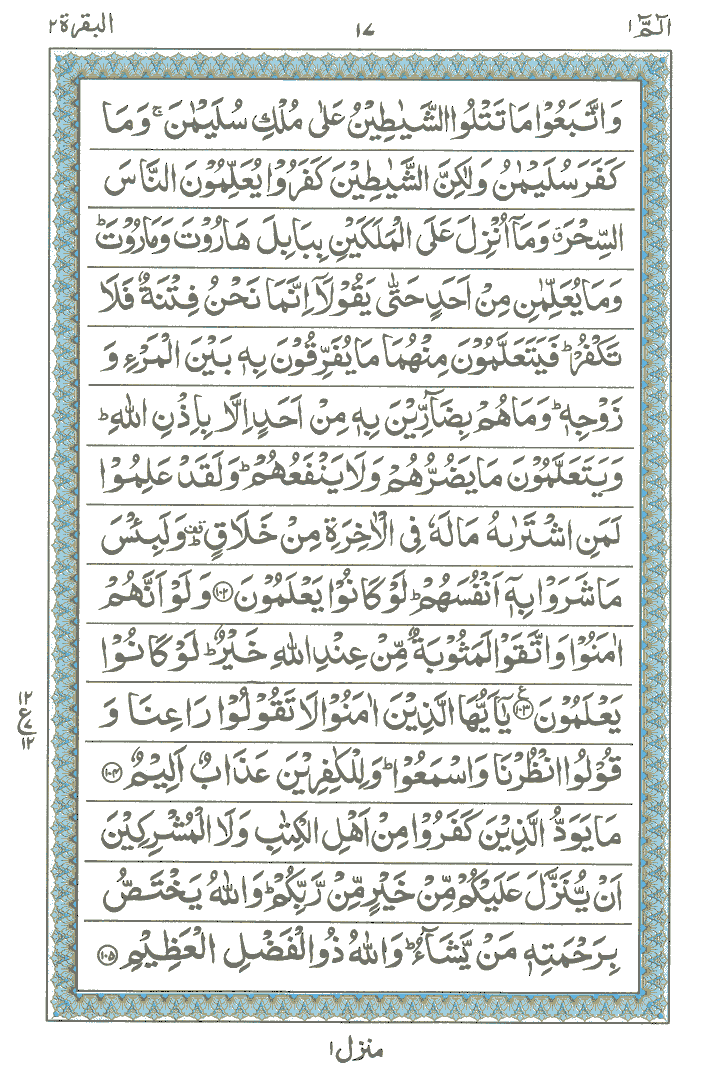 الٓمّٓ ١ ١٧ البقرة ٢
وَاتَّبَعُوْا مَا تَتْلُوا الشَّيٰطِيْنُ عَلٰى مُلْكِ سُلَيْمٰنَ ۚ وَمَا
كَفَرَ سُلَيْمٰنُ وَلٰكِنَّ الشَّيٰطِيْنَ كَفَرُوْا يُعَلِّمُوْنَ النَّاسَ
السِّحْرَ ۗ وَمَآ اُنْزِلَ عَلَى الْمَلَكَيْنِ بِبَابِلَ هَارُوْتَ وَمَارُوْتَ ؕ
وَمَا يُعَلِّمٰنِ مِنْ اَحَدٍ حَتّٰى يَقُوْلَآ اِنَّمَا نَحْنُ فِتْنَةٌ فَلَا
تَكْفُرْ ؕ فَيَتَعَلَّمُوْنَ مِنْهُمَا مَا يُفَرِّقُوْنَ بِهٖ بَيْنَ الْمَرْءِ وَ
زَوْجِهٖ ؕ وَمَا هُمْ بِضَآرِّيْنَ بِهٖ مِنْ اَحَدٍ اِلَّا بِاِذْنِ اللّٰهِ ؕ
وَيَتَعَلَّمُوْنَ مَا يَضُرُّهُمْ وَلَا يَنْفَعُهُمْ ؕ وَلَقَدْ عَلِمُوْا
لَمَنِ اشْتَرٰىهُ مَا لَهٗ فِى الْاٰخِرَةِ مِنْ خَلَاقٍ ؕ قف وَلَبِئْسَ
مَا شَرَوْا بِهٖٓ اَنْفُسَهُمْ ؕ لَوْ كَانُوْا يَعْلَمُوْنَ ﴿۱۰۲﴾ وَلَوْ اَنَّهُمْ
اٰمَنُوْا وَاتَّقَوْا لَمَثُوْبَةٌ مِّنْ عِنْدِ اللّٰهِ خَيْرٌ ؕ لَوْ كَانُوْا
يَعْلَمُوْنَ ﴿۱۰۳﴾ ع يٰٓاَيُّهَا الَّذِيْنَ اٰمَنُوْا لَا تَقُوْلُوْا رَاعِنَا وَ
١٢
ع ٧
١٢
قُوْلُوا انْظُرْنَا وَاسْمَعُوْا ؕ وَلِلْكٰفِرِيْنَ عَذَابٌ اَلِيْمٌ ﴿۱۰۴﴾
مَا يَوَدُّ الَّذِيْنَ كَفَرُوْا مِنْ اَهْلِ الْكِتٰبِ وَلَا الْمُشْرِكِيْنَ
اَنْ يُّنَزَّلَ عَلَيْكُمْ مِّنْ خَيْرٍ مِّنْ رَّبِّكُمْ ؕ وَاللّٰهُ يَخْتَصُّ
بِرَحْمَتِهٖ مَنْ يَّشَآءُ ؕ وَاللّٰهُ ذُو الْفَضْلِ الْعَظِيْمِ ﴿۱۰۵﴾
منزل ١